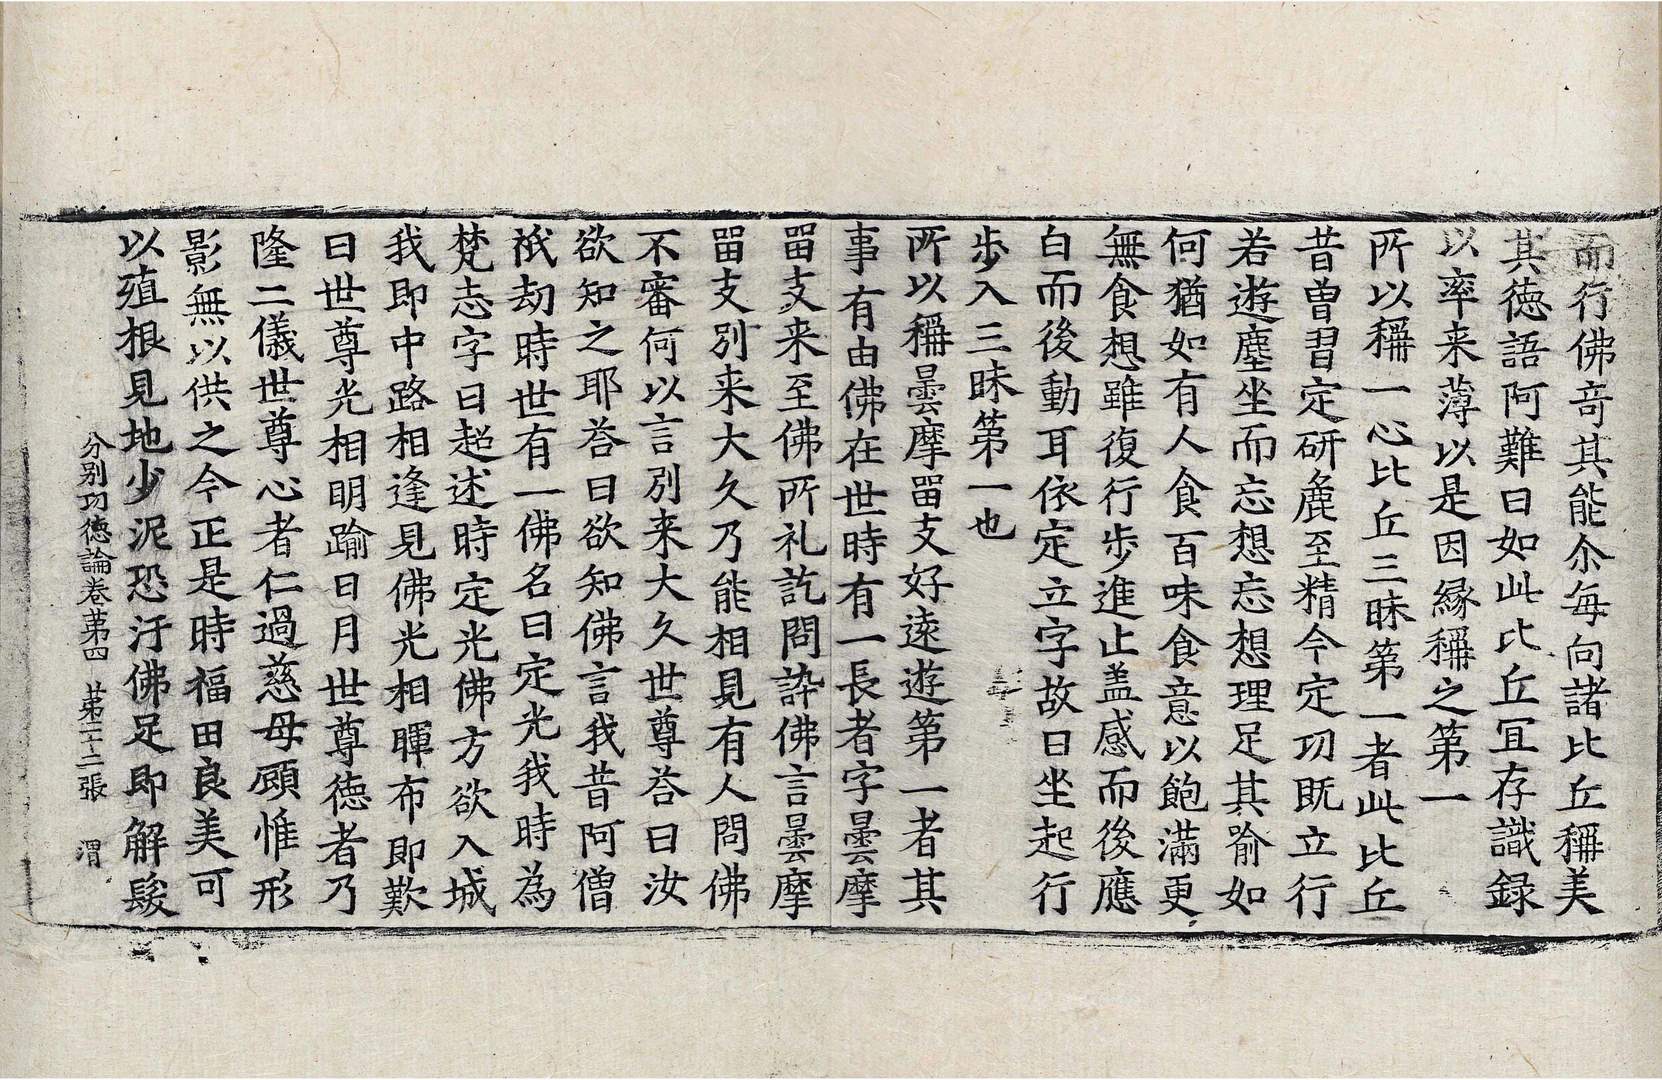 而行佛竒其能尒每向諸比丘稱美
其德語阿難曰如此比丘冝存識録
以率来薄以是因縁稱之第一
所以稱一心比丘三昧第一者此比丘
昔曽習定研麁至精今定功既立行
若遊塵坐而忘想忘想理足其喻如
何猶如有人食百味食意以飽滿更
無食想雖復行步進止盖感而後應
白而後動耳依定立字故曰坐起行
步入三昧第一也
所以稱曇摩留支好遠遊第一者其
事有由佛在世時有一長者字曇摩
留支来至佛所礼訖問訊佛言曇摩
留支別来大久乃能相見有人問佛
不審何以言別来大久世尊荅曰汝
欲知之耶荅曰欲知佛言我昔阿僧
祇劫時世有一佛名曰定光我時為
梵志字曰超述時定光佛方欲入城
我即中路相逢見佛光相暉布即歎
曰世尊光相明踰日月世尊德者乃
隆二儀世尊心者仁過慈母顧惟形
影無以供之今正是時福田良美可
以殖根見地少泥恐汙佛足即解髮
分别功德論卷第四 第二十二張 渭